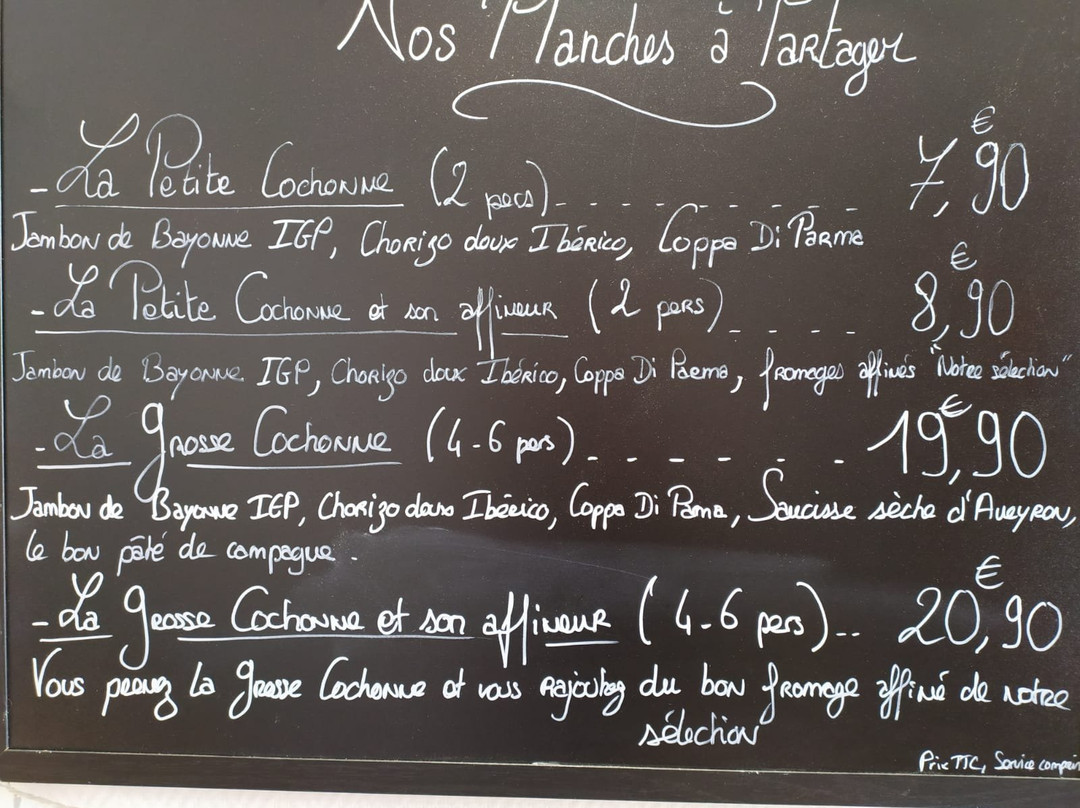 Nos Planches à Partager
- La Petite Cochonne (2 pers) - - - - - - - - - 7,90 €
Jambon de Bayonne IGP, Chorizo doux Ibérico, Coppa Di Parma
- La Petite Cochonne et son affineur (2 pers) - - - - 8,90 €
Jambon de Bayonne IGP, Chorizo doux Ibérico, Coppa Di Parma, fromages affinés "Notre sélection"
- La grosse Cochonne (4-6 pers) - - - - - - - 19,90 €
Jambon de Bayonne IGP, Chorizo doux Ibérico, Coppa Di Parma, Saucisse sèche d'Aveyron,
le bon pâté de campagne.
- La grosse Cochonne et son affineur (4-6 pers) - - 20,90 €
Vous prenez La grosse Cochonne et vous rajoutez du bon fromage affiné de notre
sélection
Prix TTC, Service compris